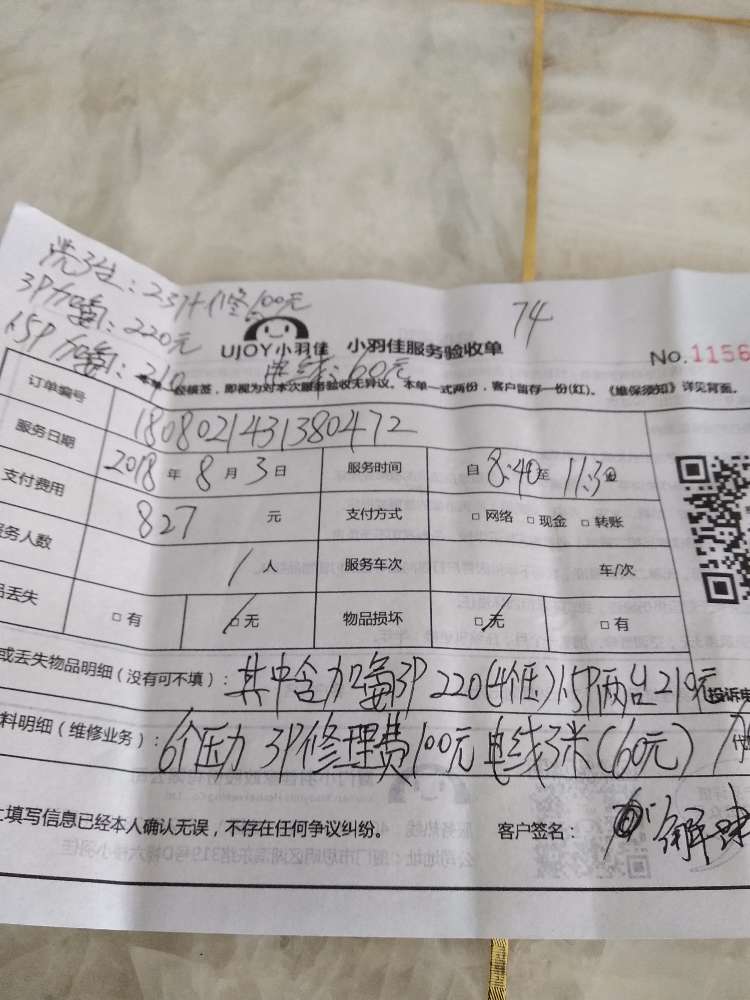 洗3台:237+修100元
3P加氟:220元
1.5P加氟:210
电线:60元
74
UJOY小羽佳 小羽佳服务验收单
No.1156
核签,即视为对本次服务验收无异议。本单一式两份,客户留存一份(红)。《维保须知》详见背面。
订单编号 1808021431380472
服务日期 2018年8月3日 服务时间 自8:40至11:30
支付费用 827元 支付方式 □网络 □现金 □转账
务人数 1人 服务车次 车/次
品丢失 □有 □无 物品损坏 □无 □有
或丢失物品明细(没有可不填): 其中含加氟3P 220(4个压)1.5P两台210元
投诉
料明细(维修业务): 6个压力 3P修理费100元 电线3米(60元)
填写信息已经本人确认无误,不存在任何争议纠纷。 客户签名: